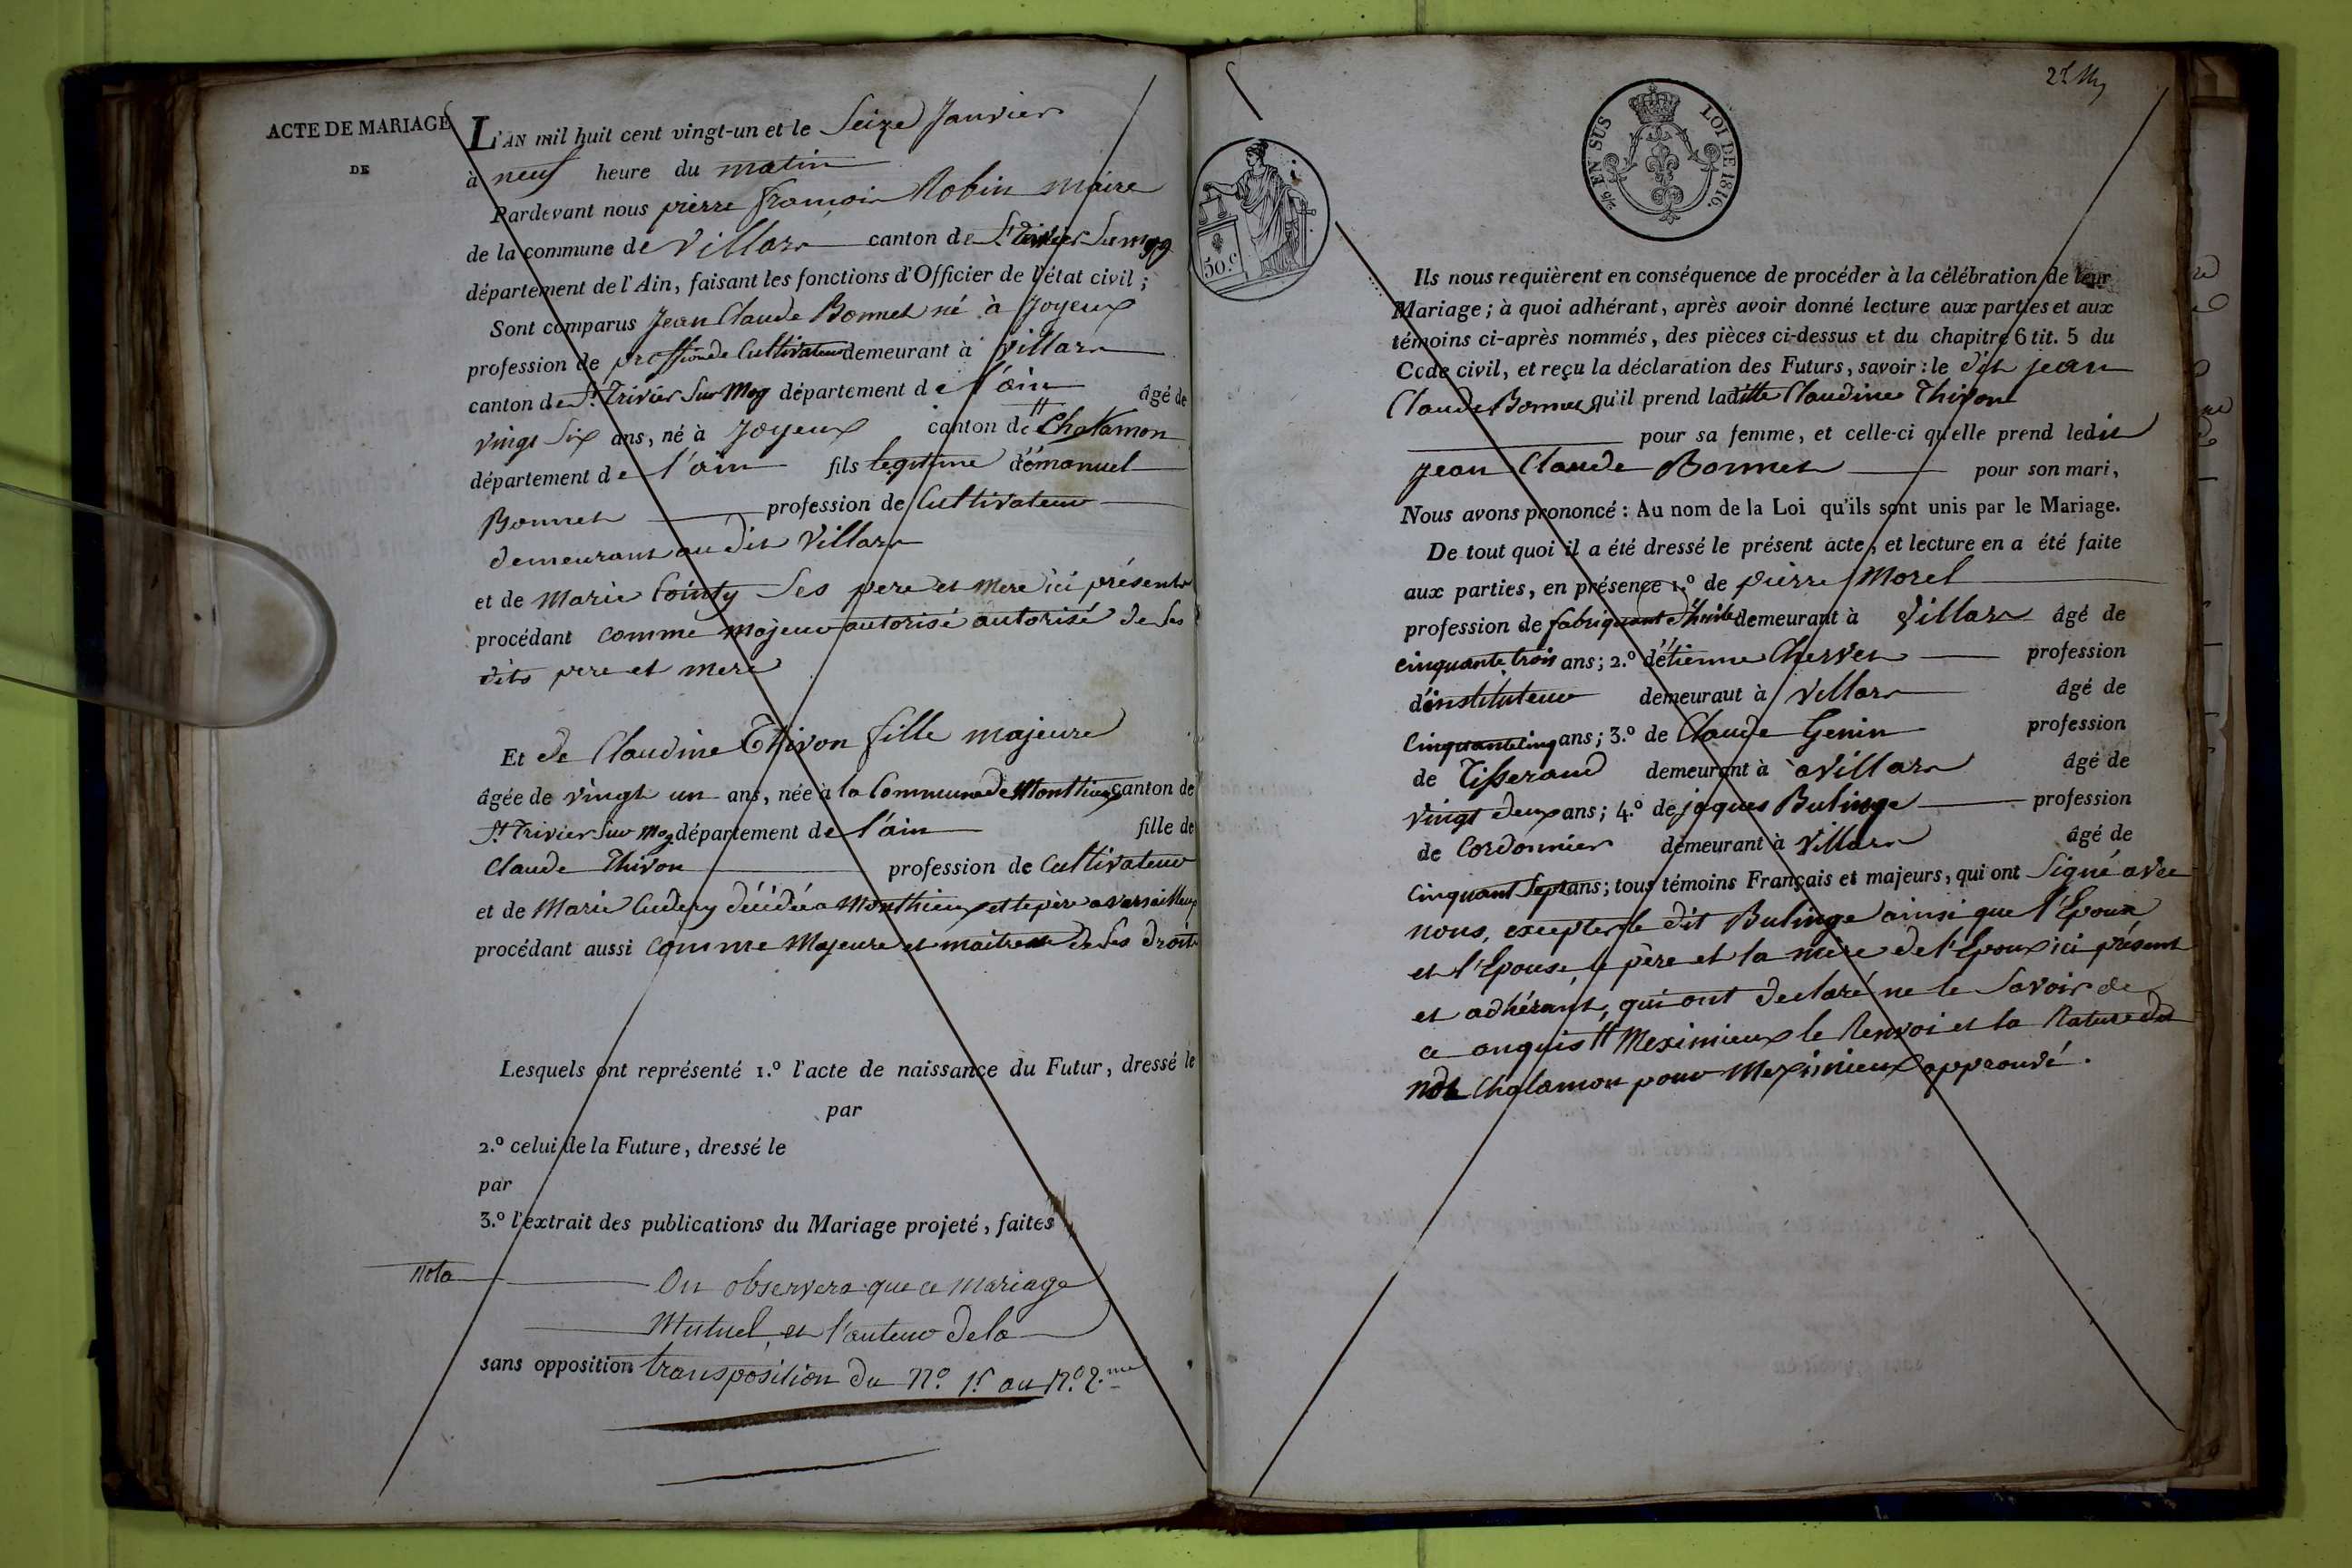 ACTE DE MARIAGE
DE
L'AN mil huit cent vingt-un et le Seize Janvier
à neuf heure du matin
Pardevant nous pierre françois Robin maire
de la commune de Villars canton de St. Trivier Sur mog
département de l'Ain, faisant les fonctions d'Officier de l'état civil ;
Sont comparus Jean Claude Bonnet né à Joyeux
profession de proffion de Cultivateur demeurant à Villars
canton de St. Trivier Sur Mog département de l'ain âgé de
vingt Six ans, né à Joyeux canton de Chalamon
département de l'ain fils legitime d'émanuel
Bonnet profession de Cultivateur
demeurant au dit Villars
et de Marie Cointy Ses pere et mere ici présents
procédant comme majeur autorisé autorisé de Ses
dits pere et mere
Et de Claudine Thivon fille majeure
âgée de vingt un ans, née à la Commune de Monthieux canton de
St. Trivier Sur Mog département de l'ain fille de
Claude Thivon profession de Cultivateur
et de Marie Cudery décédée a Monthieux et le père a versailleux
procédant aussi comme Majeure et maitresse de Ses droits
Lesquels ont représenté 1.º l'acte de naissance du Futur, dressé le
par
2.º celui de la Future, dressé le
par
3.º l'extrait des publications du Mariage projeté, faites
Nota On observera que ce mariage
Mutuel, est l'auteur de la
sans opposition transposition du N.º 1r au N.º 2.me
50.c
5/26 EN SUS LOI DE 1816.
Ils nous requièrent en conséquence de procéder à la célébration de leur
Mariage ; à quoi adhérant, après avoir donné lecture aux parties et aux
témoins ci-après nommés, des pièces ci-dessus et du chapitre 6 tit. 5 du
Code civil, et reçu la déclaration des Futurs, savoir : le dit jean
Claude Bonnet qu'il prend laditte Claudine Thivon
pour sa femme, et celle-ci qu'elle prend ledit
jean Claude Bonnet pour son mari,
Nous avons prononcé : Au nom de la Loi qu'ils sont unis par le Mariage.
De tout quoi il a été dressé le présent acte, et lecture en a été faite
aux parties, en présence 1.º de pierre Morel
profession de fabriquant d'huile demeurant à Villars âgé de
cinquante trois ans ; 2.º d'étienne Chervet profession
d'instituteur demeuraut à Villars âgé de
Cinquante cinq ans ; 3.º de Claude Genin profession
de Tisserand demeurant à a Villars âgé de
vingt deux ans ; 4.º de jaques Bulinge profession
de Cordonnier demeurant à Villars âgé de
cinquant Sept ans ; tous témoins Français et majeurs, qui ont Signé avec
nous, excepter le dit Bulinge ainsi que l'Epoux
et l'Epouse, le père et la mere de l'Epoux ici présent
et adhérant, qui ont declaré ne le Savoir de
ce enquis # Meximieux le Renvoi et la Rature du
mot Chalamon pour Meximieux approuvé.